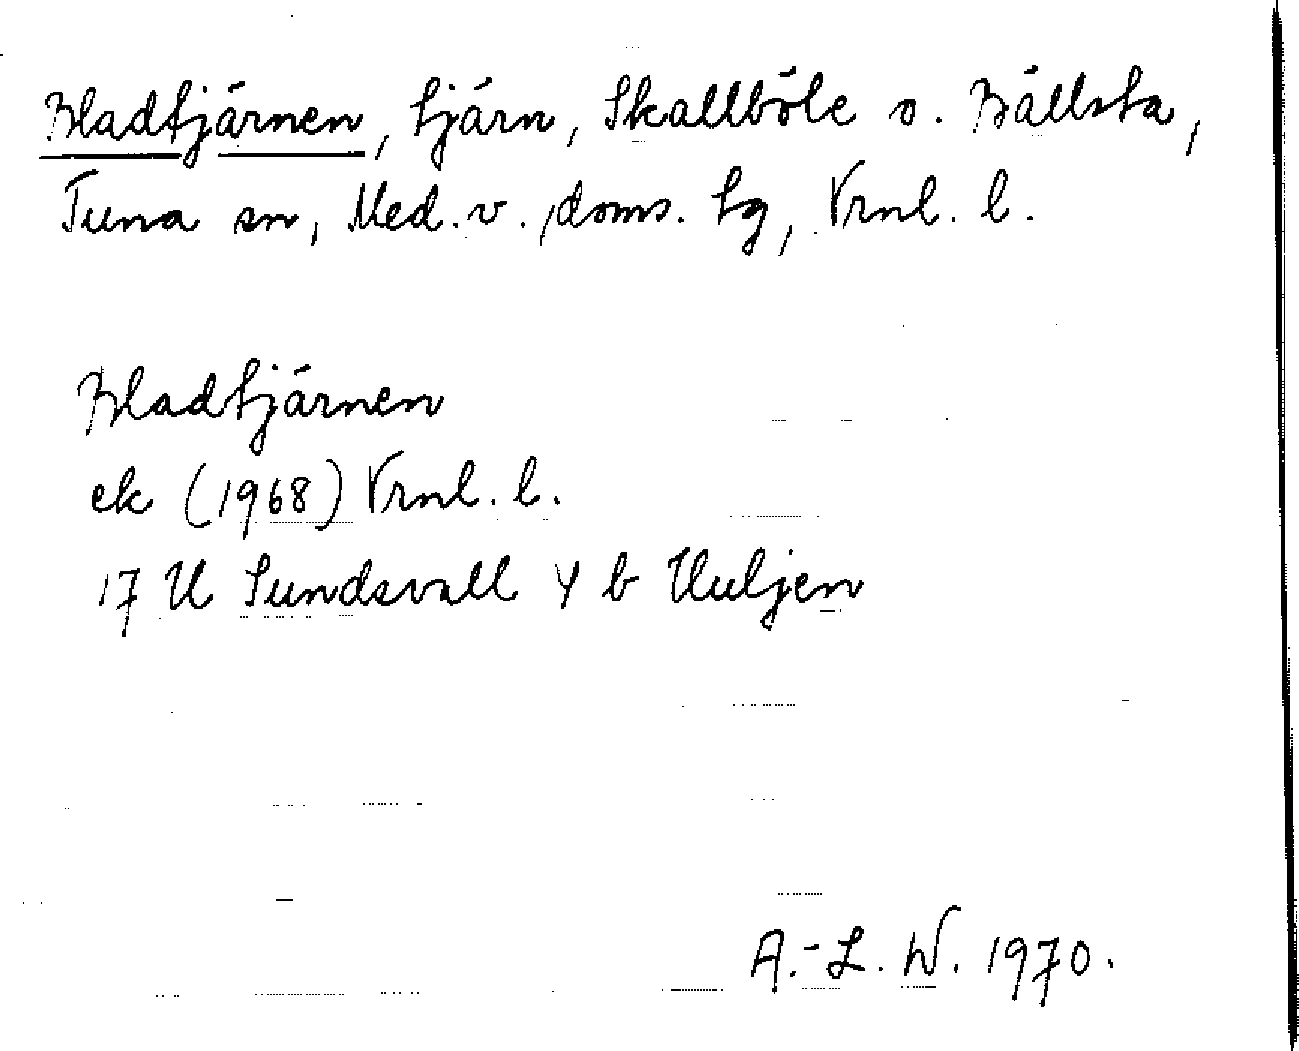 Bladtjärnen, tjärn, Skallböle o. Bällsta,
Tuna sn, Med. v. doms. tg, Vrnl. l.
Bladtjärnen
ek (1968) Vrnl. l.
17 H Sundsvall 4 b Huljen
A.-L. W. 1970.